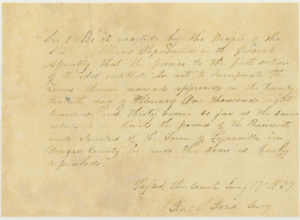 Sec 1 Be it enacted by the People of the
State of Illinois Represented in the General
Assembly that the proviso to the fifth section
of the Act entitled An act to incorporate the
towns therein named approved on the Twenty
day of February One thousand eight
hundred and thirty so far as the same
relates to limits the powers of the President
and Trustees of the Town of Lynnville in
Morgan County be and the same is hereby
repealed
Passed the Senate Jany 17th 1839
Benj Bond Secy